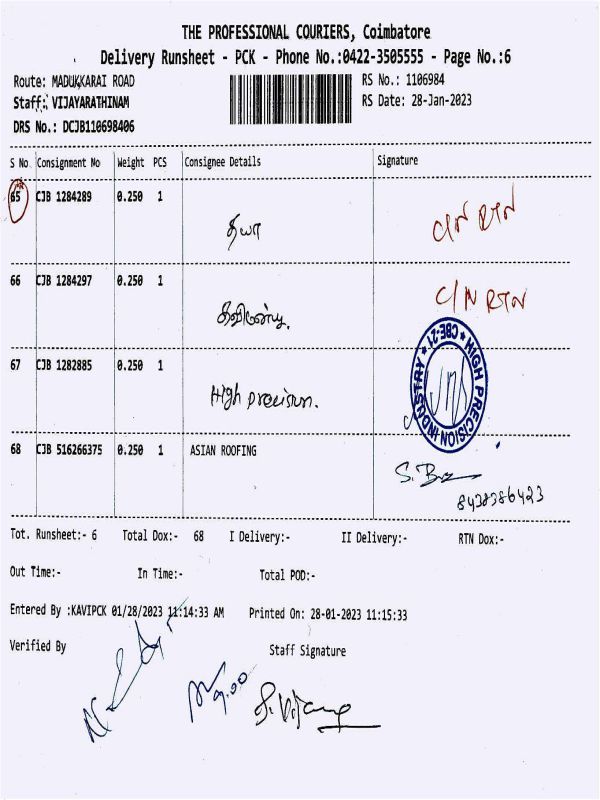 THE PROFESSIONAL COURIERS, Coimbatore
Delivery Runsheet - PCK - Phone No.:0422-3505555 - Page No.:6
Route: MADUKKARAI ROAD RS No.: 1106984
Staff: VIJAYARATHINAM RS Date: 28-Jan-2023
DRS No.: DCJB110698406
S No Consignment No Weight PCS Consignee Details Signature
65 CJB 1284289 0.250 1
தியா C/N RTN
66 CJB 1284297 0.250 1 C/N RTN
67 CJB 1282885 0.250 1
High precision. HIGH PRECISION INDUSTRY * CBE-21 *
68 CJB 516266375 0.250 1 ASIAN ROOFING
8438386423
Tot. Runsheet:- 6 Total Dox:- 68 I Delivery:- II Delivery:- RTN Dox:-
Out Time:- In Time:- Total POD:-
Entered By :KAVIPCK 01/28/2023 11:14:33 AM Printed On: 28-01-2023 11:15:33
Verified By Staff Signature